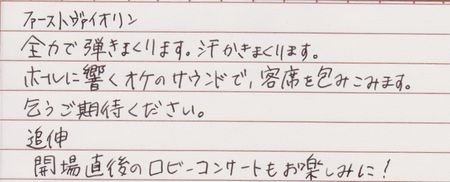 ファーストヴァイオリン
全力で弾きまくります。汗かきまくります。
ホールに響くオケのサウンドで、客席を包みこみます。
乞うご期待ください。
追伸
開場直後のロビーコンサートもお楽しみに!